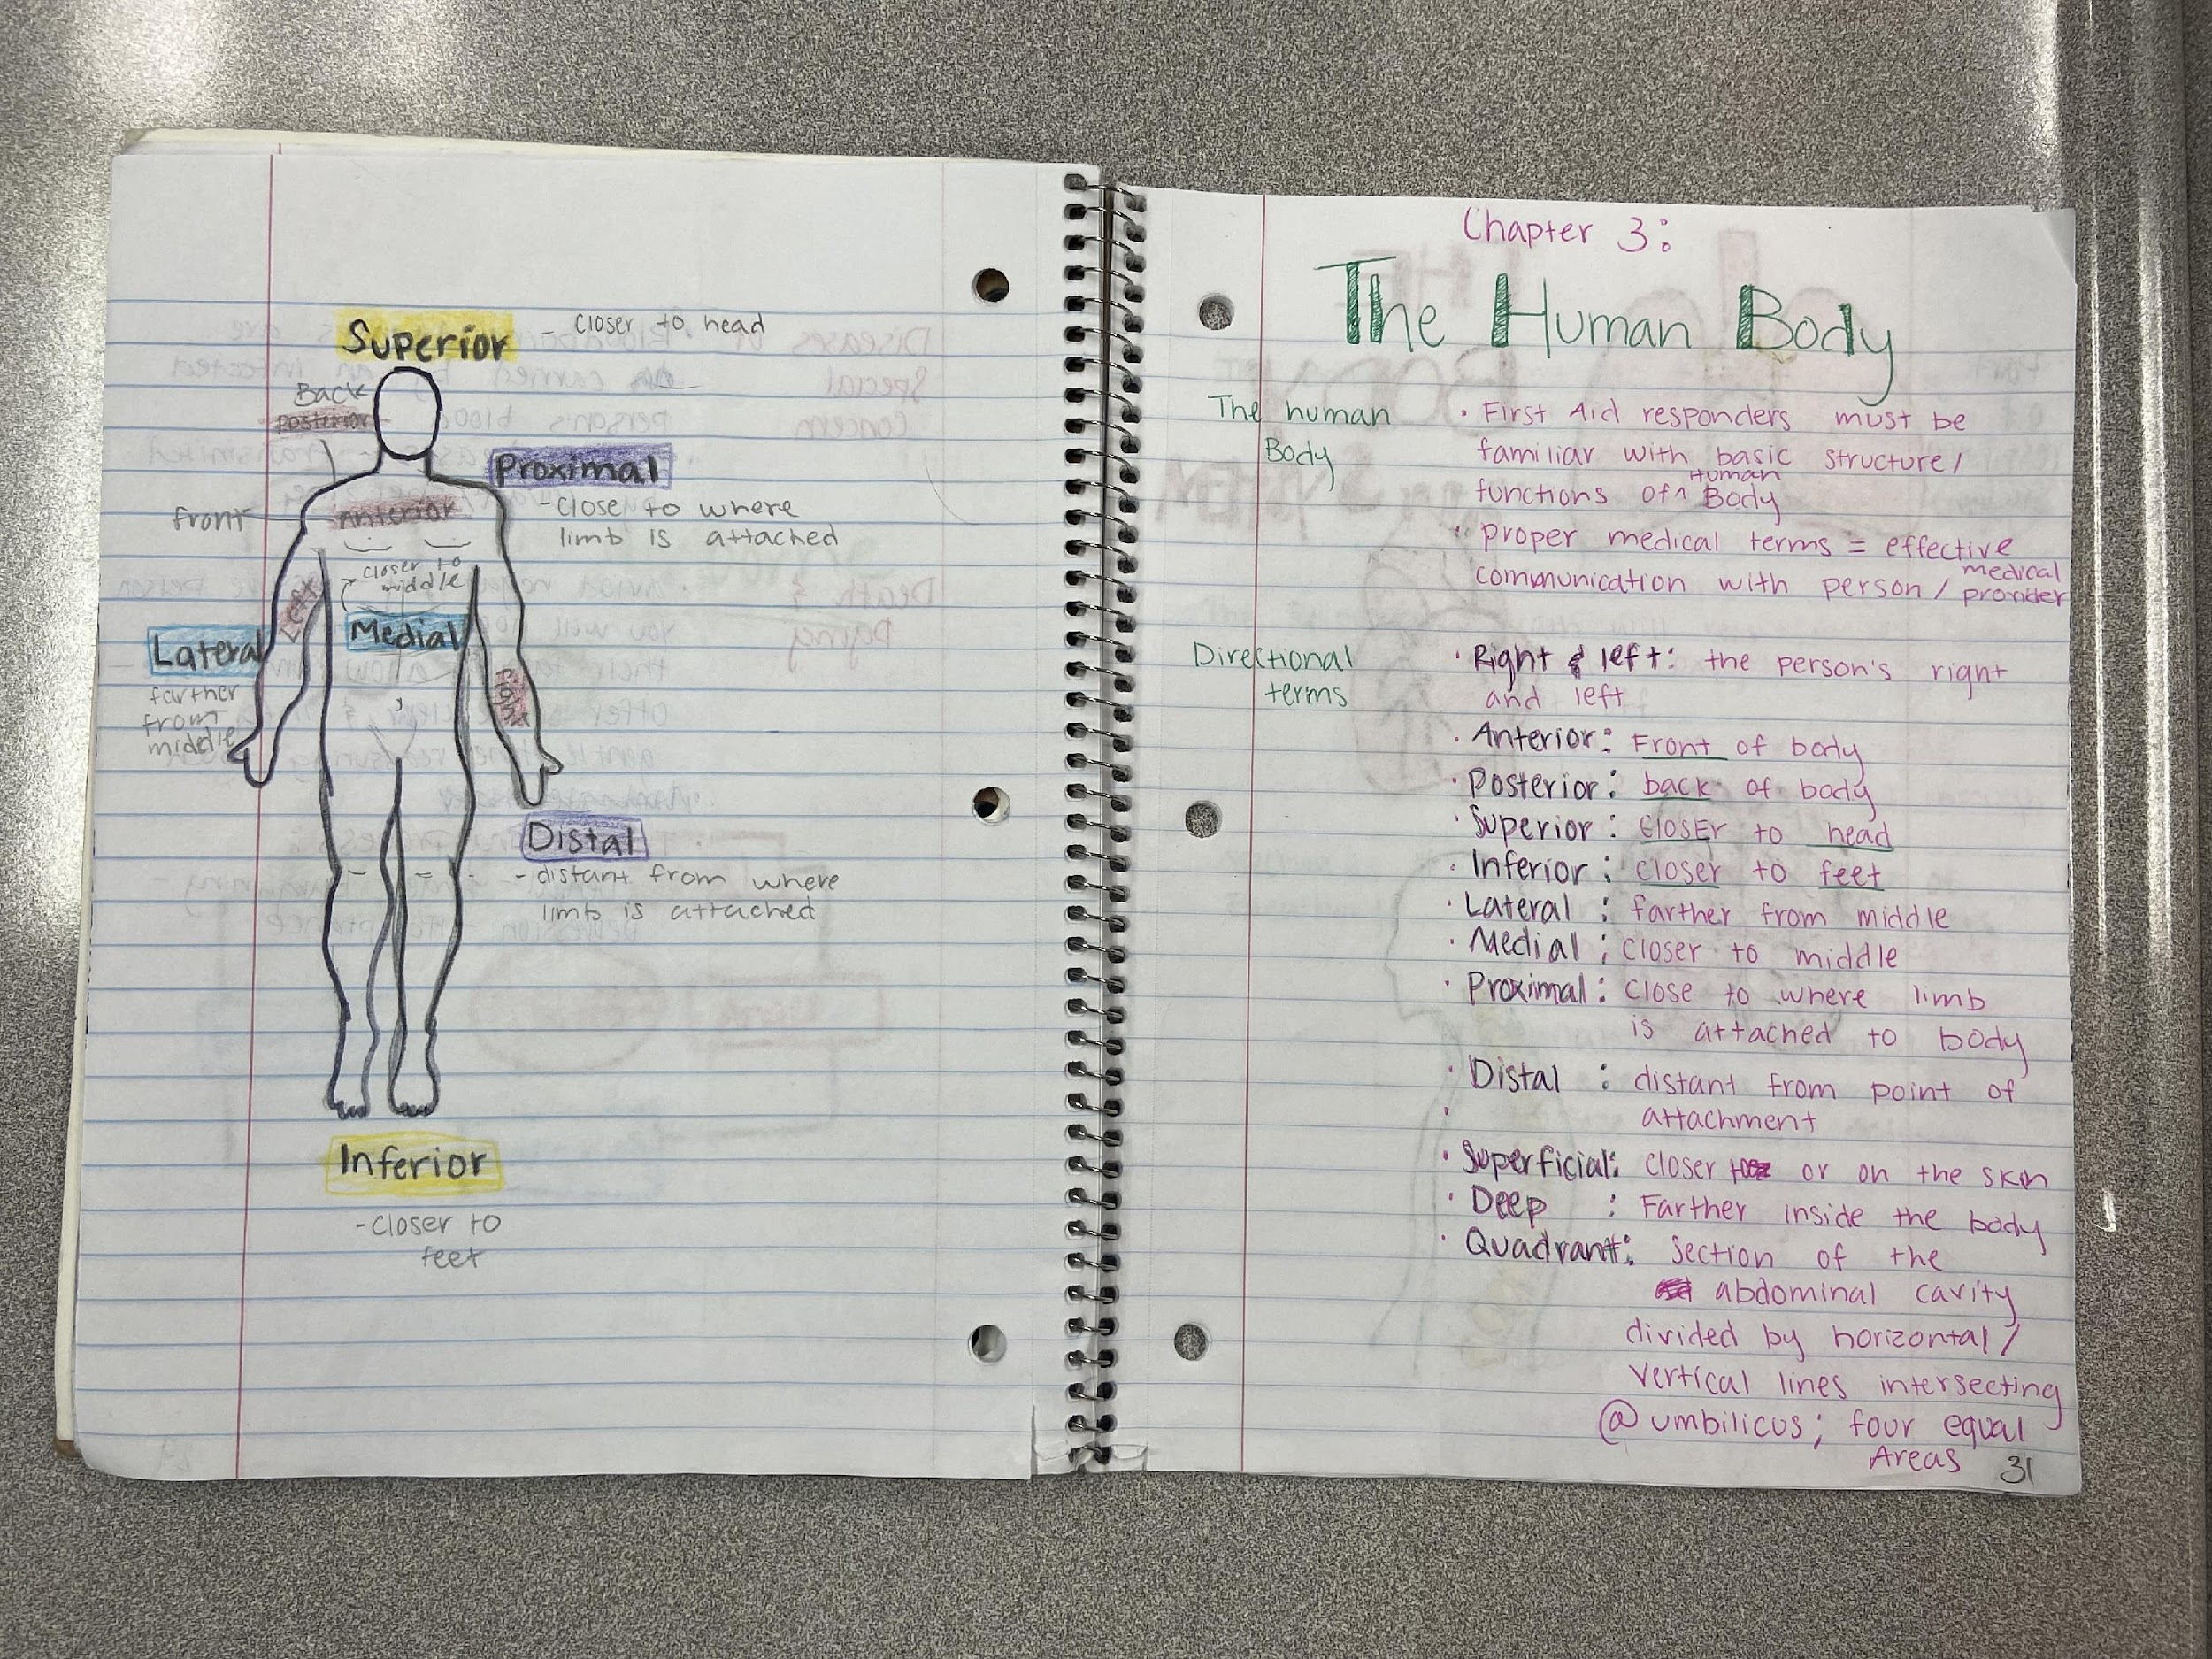 Superior - closer to head
Back
posterior
Proximal
- close to where
limb is attached
front
anterior
closer to
middle
Left
Medial
Lateral
farther
from
middle
right
Distal
- distant from where
limb is attached
Inferior
- closer to
feet
Chapter 3:
The Human Body
The human
Body
• First Aid responders must be
familiar with basic structure/
functions of ^ Human Body
• proper medical terms = effective
communication with person / medical provider
Directional
terms
• Right & left: the person's right
and left
• Anterior: Front of body
• Posterior: back of body
• Superior: closEr to head
• Inferior: closer to feet
• Lateral: farther from middle
• Medial: closer to middle
• Proximal: close to where limb
is attached to body
• Distal: distant from point of
• attachment
• Superficial: closer or on the skin
• Deep: Farther inside the body
• Quadrant: section of the
abdominal cavity
divided by horizontal/
vertical lines intersecting
@ umbilicus; four equal
Areas
31